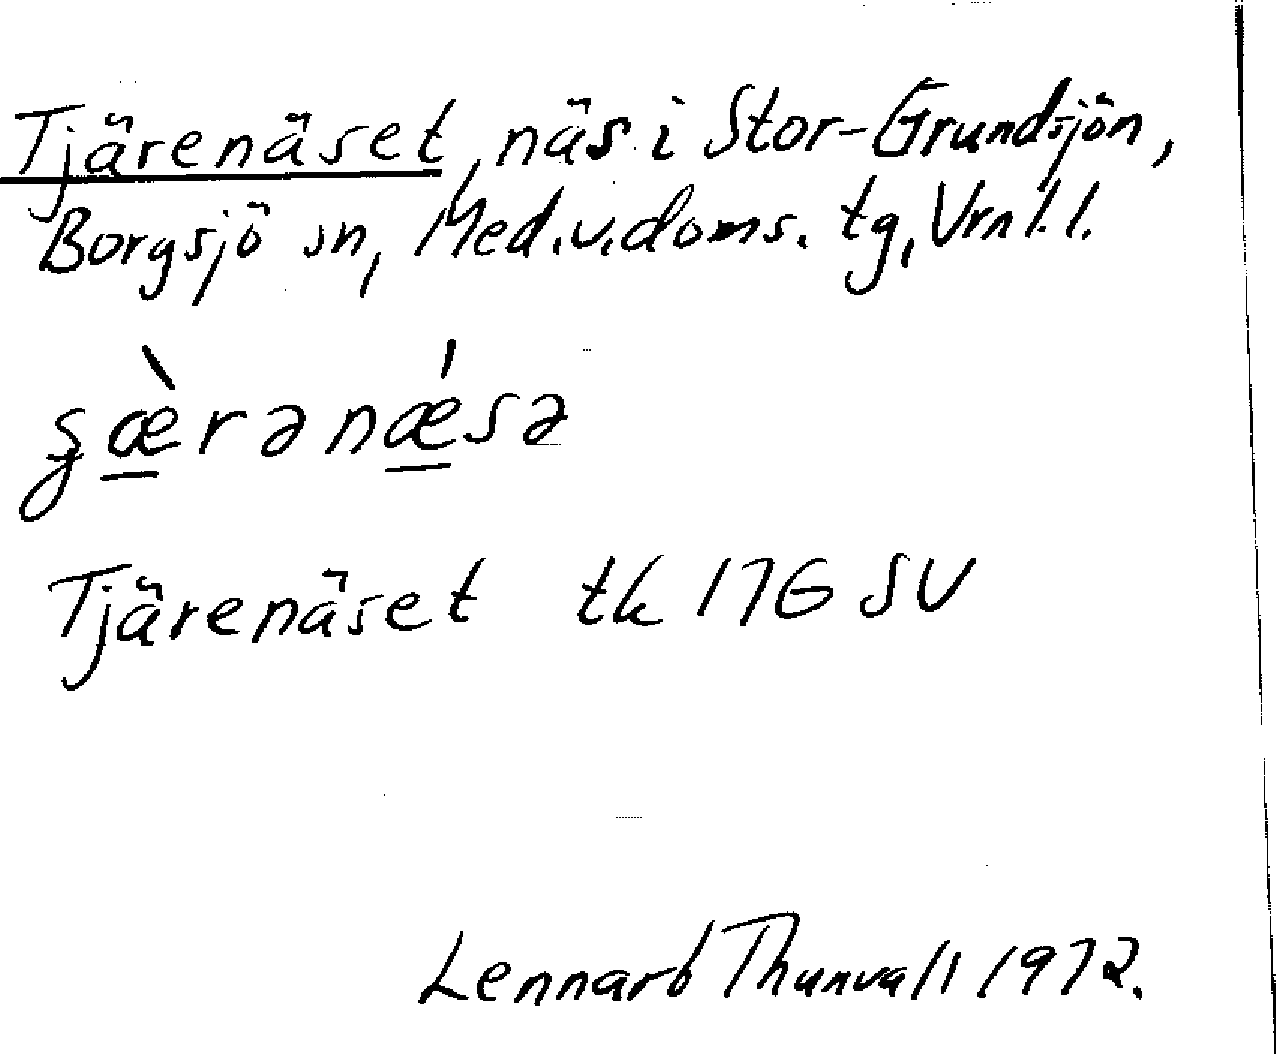 Tjärenäset, näs i Stor-Grundsjön,
Borgsjö sn, Med.v.doms. tg, Vrnl.l.
ʂæ̀rənǽsə
Tjärenäset tk 17G SV
Lennart Thunvall 1972.